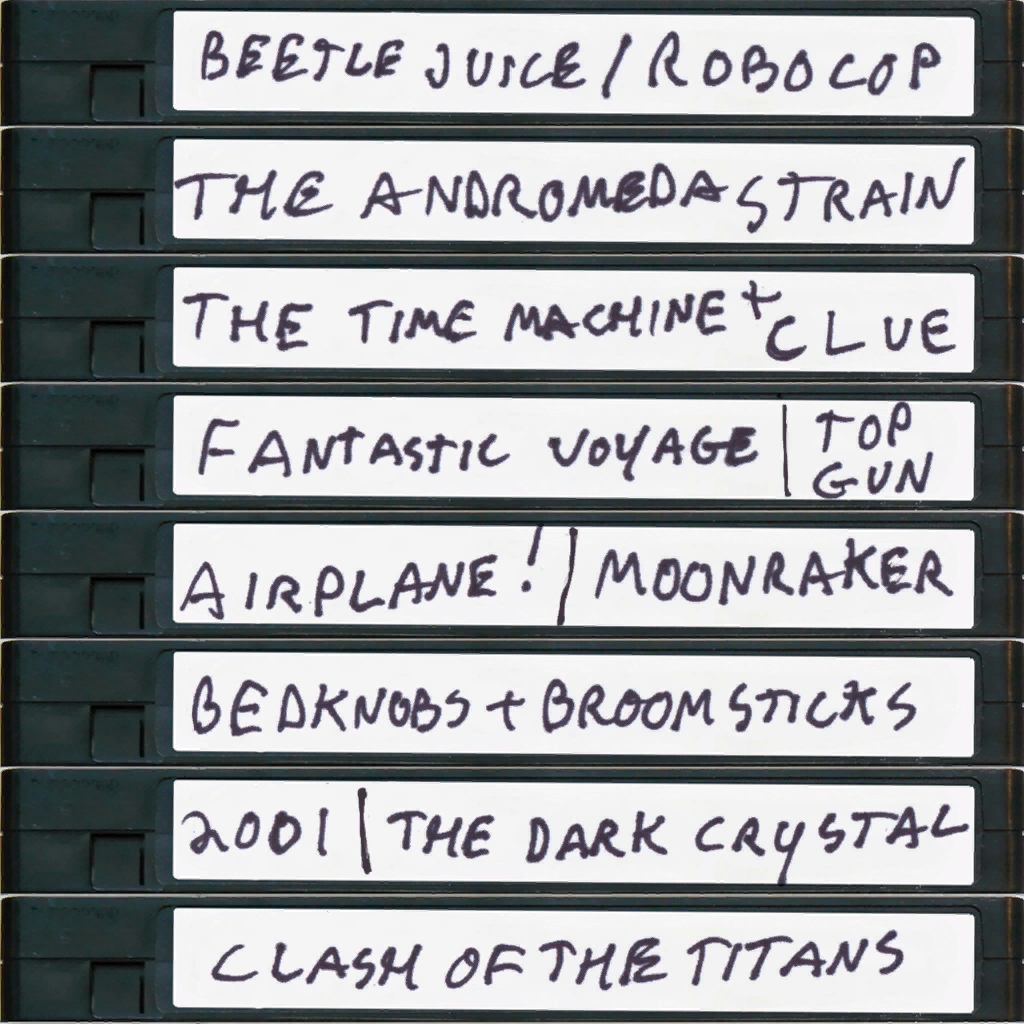 BEETLE JUICE / ROBOCOP
THE ANDROMEDA STRAIN
THE TIME MACHINE + CLUE
FANTASTIC VOYAGE | TOP
GUN
AIRPLANE! / MOONRAKER
BEDKNOBS + BROOMSTICKS
2001 | THE DARK CRYSTAL
CLASH OF THE TITANS